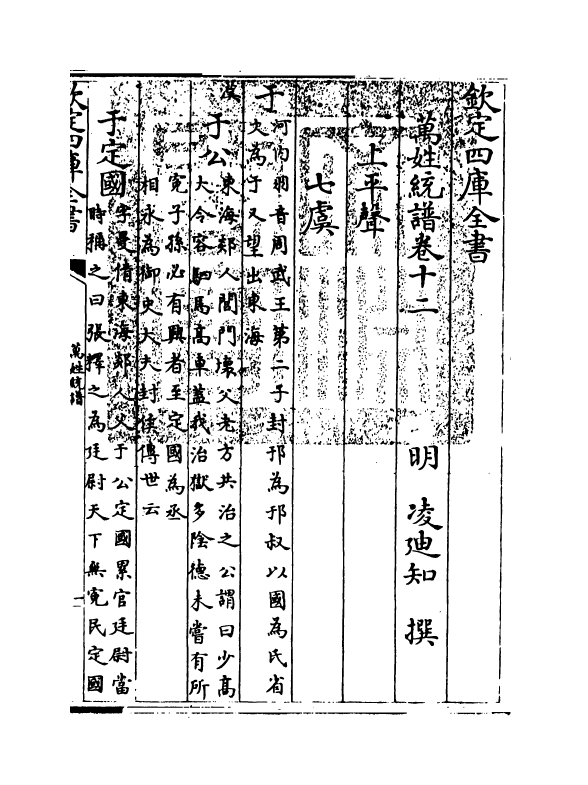 欽定四庫全書
萬姓統譜卷十二 明 凌迪知 撰
上平聲
七虞
于 河内羽音周武王第二子封邘為邘叔以國為氏省
文為于又望出東海
于公 東海郯人閭門壞父老方共治之公謂曰少高
大令容駟馬高車蓋我治獄多陰德未嘗有所
寃子孫必有興者至定國為丞
相永為御史大夫封侯傳世云
于定國 字曼倩東海郯人父于公定國累官廷尉當
時稱之曰張釋之為廷尉天下無寃民定國
欽定四庫全書
萬姓統譜